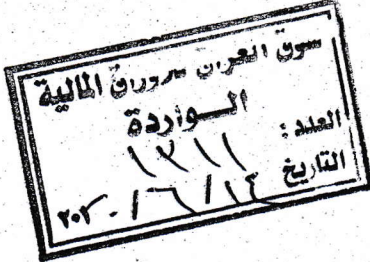 سوق العراق للاوراق المالية
الــواردة
العدد : ١٣١١
التاريخ ١٤/٦/٢٠٢٠